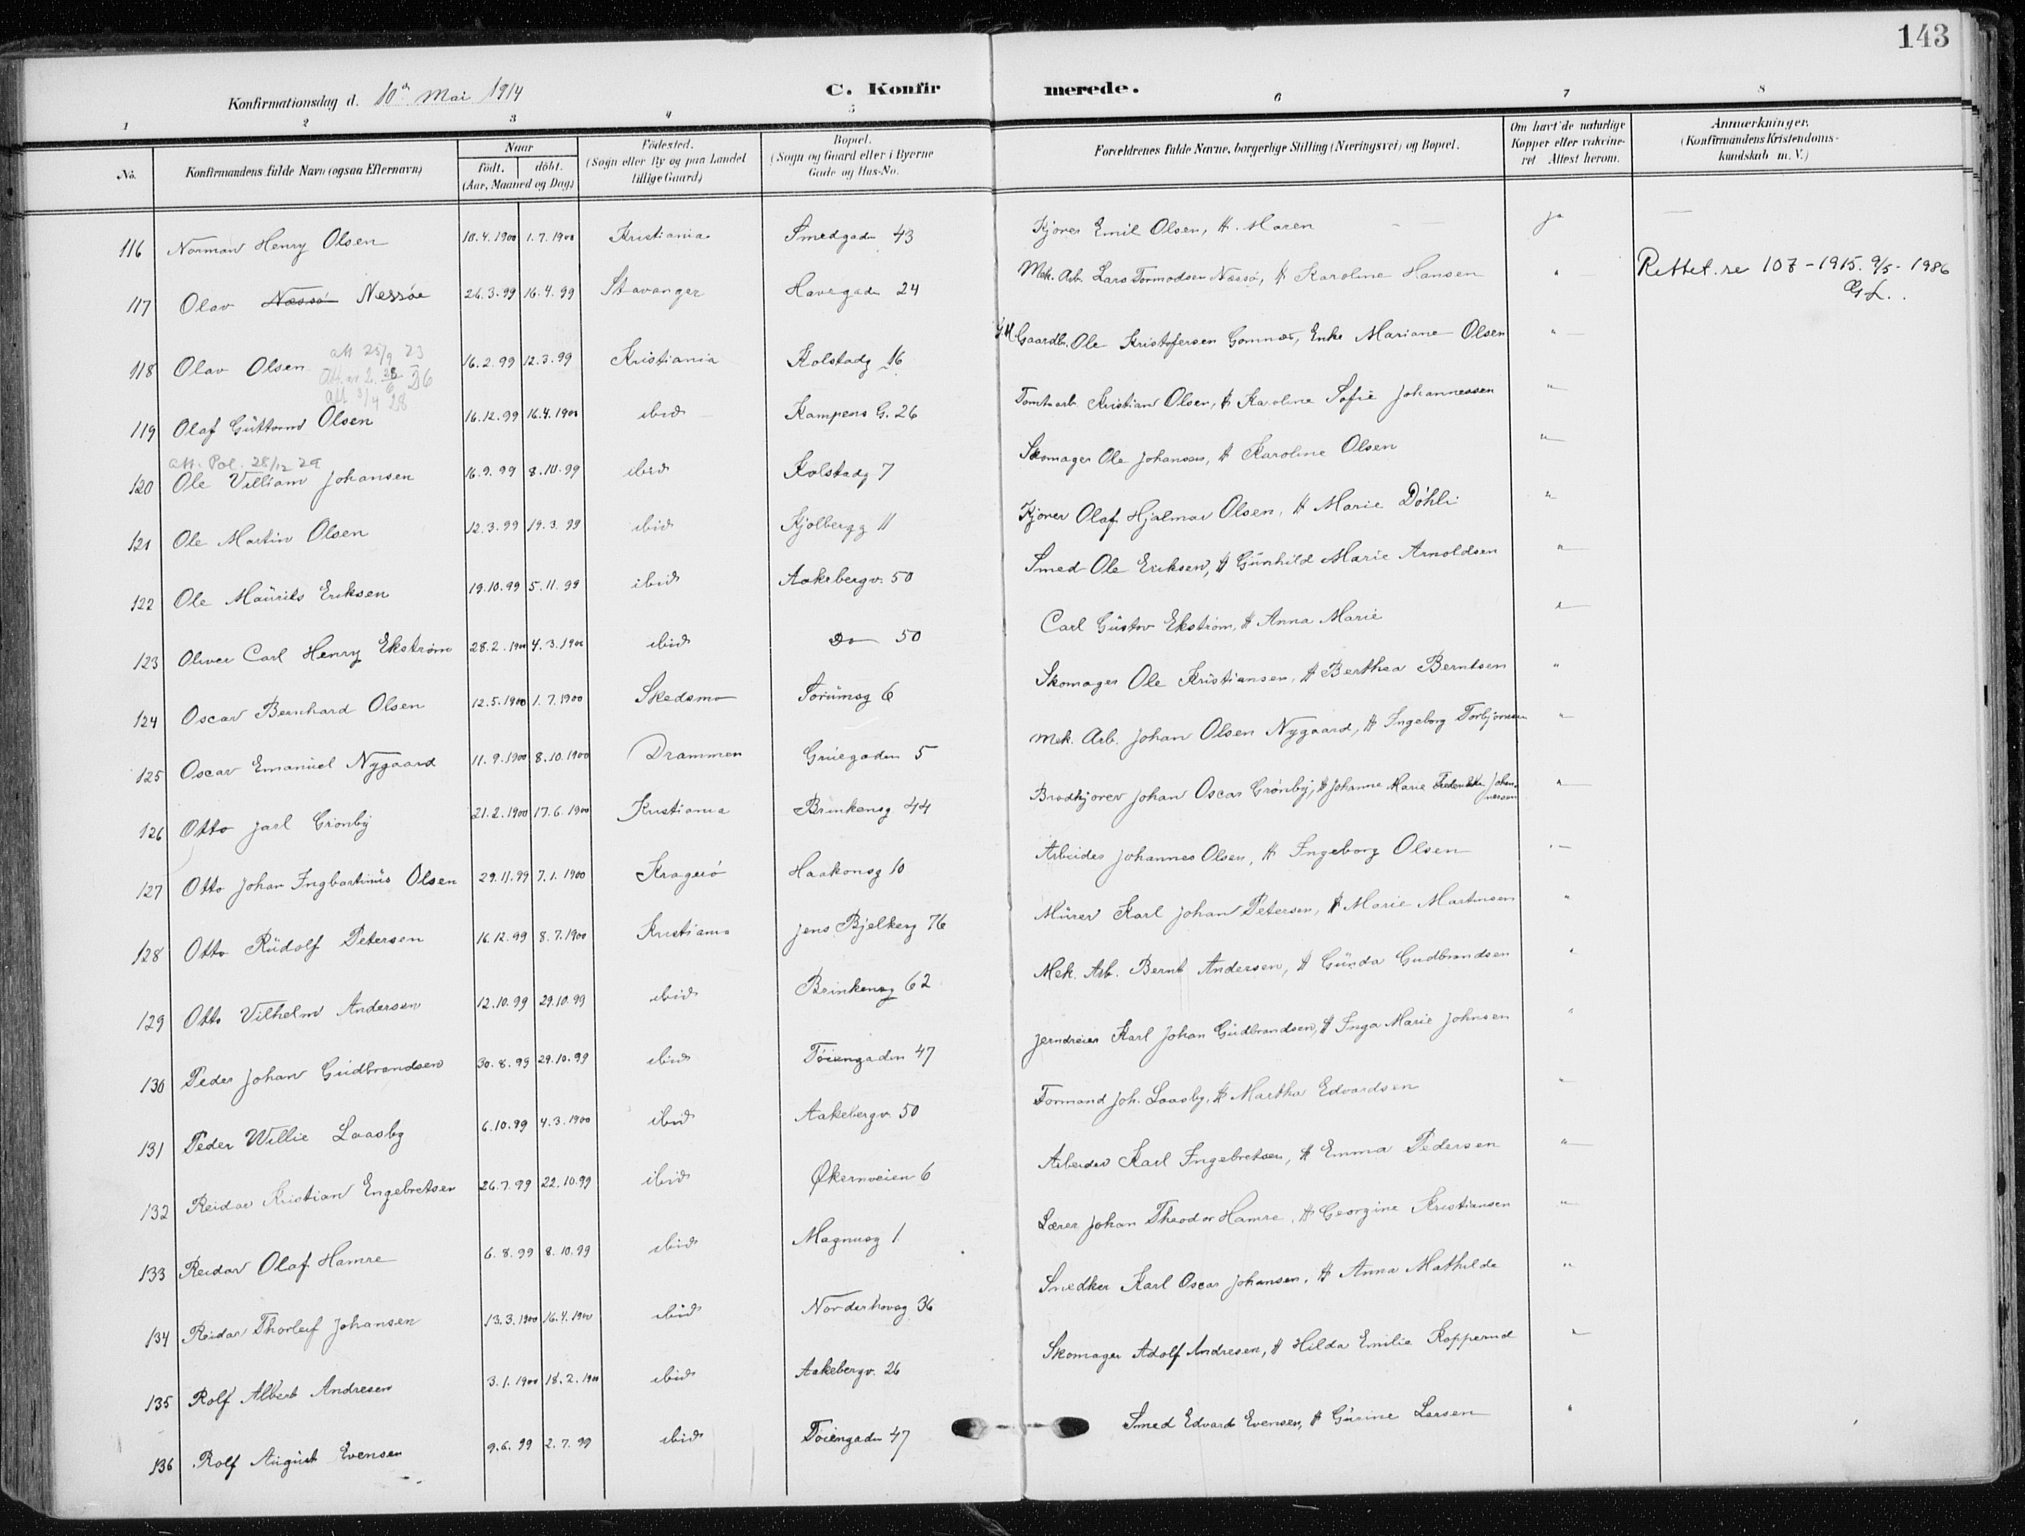 143
Konfirmationsdag d. 10de Mai 1914 C. Konfirmerede.
1 2 3 4 5 6 7 8
No. Konfirmandens fulde Navn (ogsaa Efternavn) Naar født. døbt. (Aar, Maaned og Dag) Fødested. (Sogn eller By og paa Landet tillige Gaard) Bopæl. (Sogn og Gaard eller i Byerne Gade og Hus-No. Forældrenes fulde Navne, borgerlige Stilling (Næringsvei) og Bopæl. Om havt de naturlige Kopper eller vakcineret Attest herom. Anmærkninger. (Konfirmandens Kristendomskundskab m. V.)
116 Norman Henry Olsen 10.4.1900 1.7.1900 Kristiania Smedgaden 43 Kjører Emil Olsen, H. Maren ja —
117 Olav Næssø Næssøe 26.3.99 16.4.99 Stavanger Havegaden 24 Mek. Arb. Lars Tormodsen Næssø, H Karoline Hansen " Rettet. se 107 - 1915. 9/5 - 1986
118 Olav Olsen 16.2.99 12.3.99 Kristiania Kolstadg 16 Gaardb. Ole Kristofersen Gomnæs, Enke Mariane Olsen "
att 25/9 23
att 3/4 28
119 Olaf Guttorm Olsen 16.12.99 16.4.1900 ibid Kampens G. 26 Tomtearb. Kristian Olsen, H Karoline Sofie Johannessen "
att. Pol. 28/12 29
120 Ole Villiam Johansen 16.9.99 8.10.99 ibid Kolstadg 7 Skomager Ole Johansen, H Karoline Olsen "
121 Ole Martin Olsen 12.3.99 19.3.99 ibid Kjølbergg 11 Kjører Olaf Hjalmar Olsen, H Marie Døhli "
122 Ole Maurits Eriksen 19.10.99 5.11.99 ibid Aakebergv. 50 Smed Ole Eriksen, H Gunhild Marie Arnoldsen "
123 Oliver Carl Henry Ekstrøm 28.2.1900 4.3.1900 ibid Do 50 Carl Gustav Ekstrøm, H Anna Marie "
124 Oscar Bernhard Olsen 12.5.1900 1.7.1900 Skedsmo Sørumsg 6 Skomager Ole Kristiansen, H Berthea Berntsen "
125 Oscar Emanuel Nygaard 11.9.1900 8.10.1900 Drammen Gruegaden 5 Mek. Arb. Johan Olsen Nygaard, H Ingeborg Torbjørnsen "
126 Otto Jarl Grønby 21.2.1900 17.6.1900 Kristiania Brinkensg 44 Brødkjører Johan Oscar Grønby, H Johanne Marie Fredrikke Johannessen "
127 Otto Johan Ingbartinus Olsen 29.11.99 7.1.1900 Kragerø Haakonsg 10 Arbeider Johannes Olsen, H Ingeborg Olsen "
128 Otto Rudolf Petersen 16.12.99 8.7.1900 Kristiania Jens Bjelkesg 76 Murer Karl Johan Petersen, H Marie Martinsen "
129 Otto Vilhelm Andersen 12.10.99 29.10.99 ibid Brinkensg 62 Mek. Arb. Bernt Andersen, H Gunda Gudbrandsen "
130 Peder Johan Gudbrandsen 30.8.99 29.10.99 ibid Tøiengaden 47 Jerndreier Karl Johan Gudbrandsen, H Inga Marie Johnsen "
131 Peder Willie Laasby 6.10.99 4.3.1900 ibid Aakebergv. 50 Formand Joh. Laasby, H Martha Edvardsen "
132 Reidar Kristian Engebretsen 26.7.99 22.10.99 ibid Økernveien 6 Arbeider Karl Ingebretsen, H Emma Pedersen "
133 Reidar Olaf Hamre 6.8.99 8.10.99 ibid Magnusg 1 Lærer Johan Theodor Hamre, H Georgine Kristiansen "
134 Reidar Thorleif Johansen 13.3.1900 16.4.1900 ibid Norderhovsg 36 Snedker Karl Oscar Johansen, H Anna Mathilda "
135 Rolf Albert Andresen 3.1.1900 18.2.1900 ibid Aakebergv. 26 Skomager Adolf Andresen, H Hilda Emilie Koppernd "
136 Rolf August Evensen 9.6.99 2.7.99 ibid Tøiengaden 47 Smed Edvard Evensen, H Gurine Larsen "